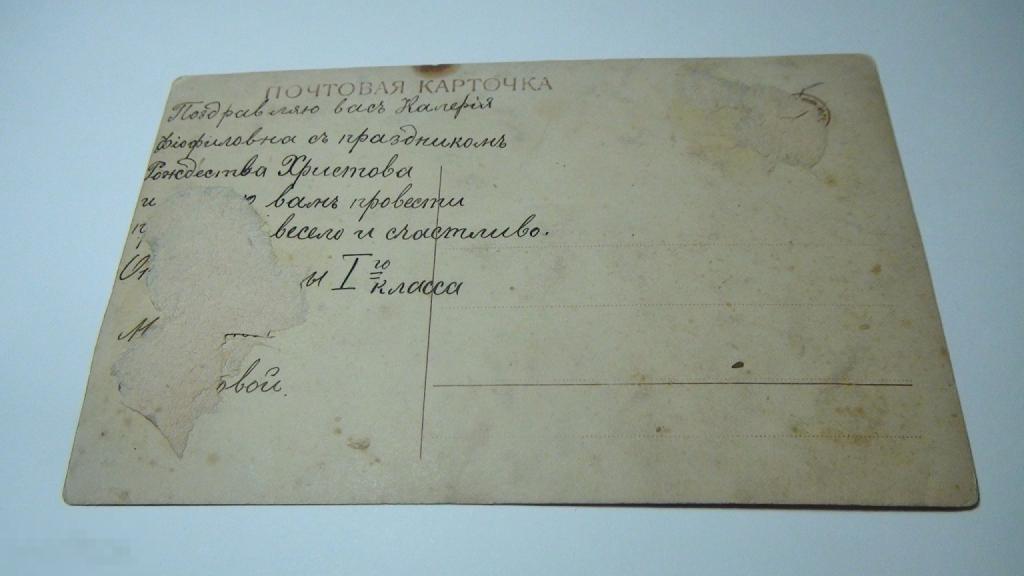 ПОЧТОВАЯ КАРТОЧКА
Поздравляю васъ Калерія
Фіофиловна съ праздникомъ
Рождества Христова
и вамъ провести
весело и счастливо.
I го класса